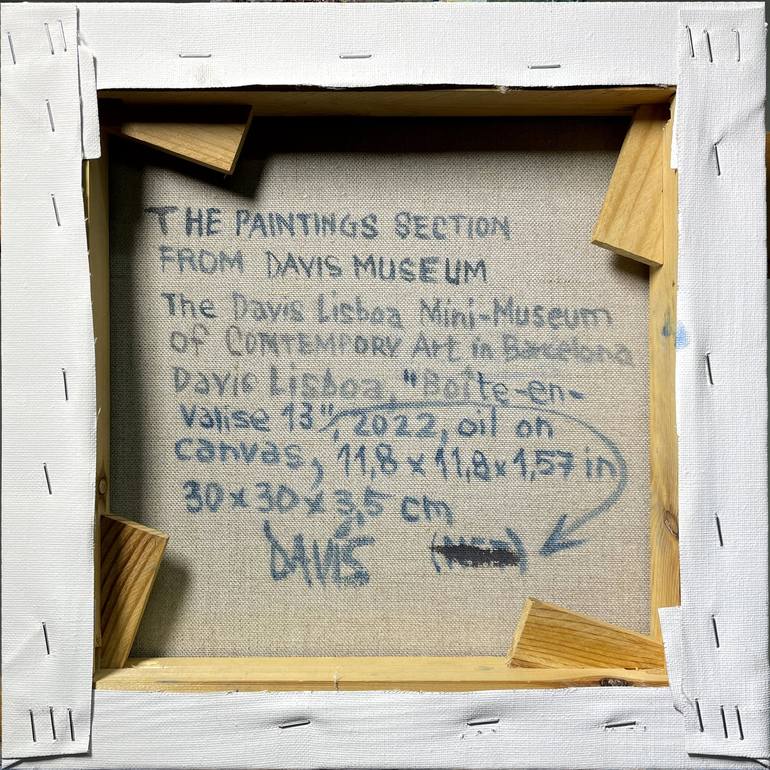 THE PAINTINGS SECTION
FROM DAVIS MUSEUM
The Davis Lisboa Mini-Museum
of CONTEMPORY Art in Barcelona
Davis Lisboa, "Boîte-en-
valise 13", 2022, oil on
canvas, 11,8 x 11,8 x 1,57 in
30 x 30 x 3,5 cm
DAVIS